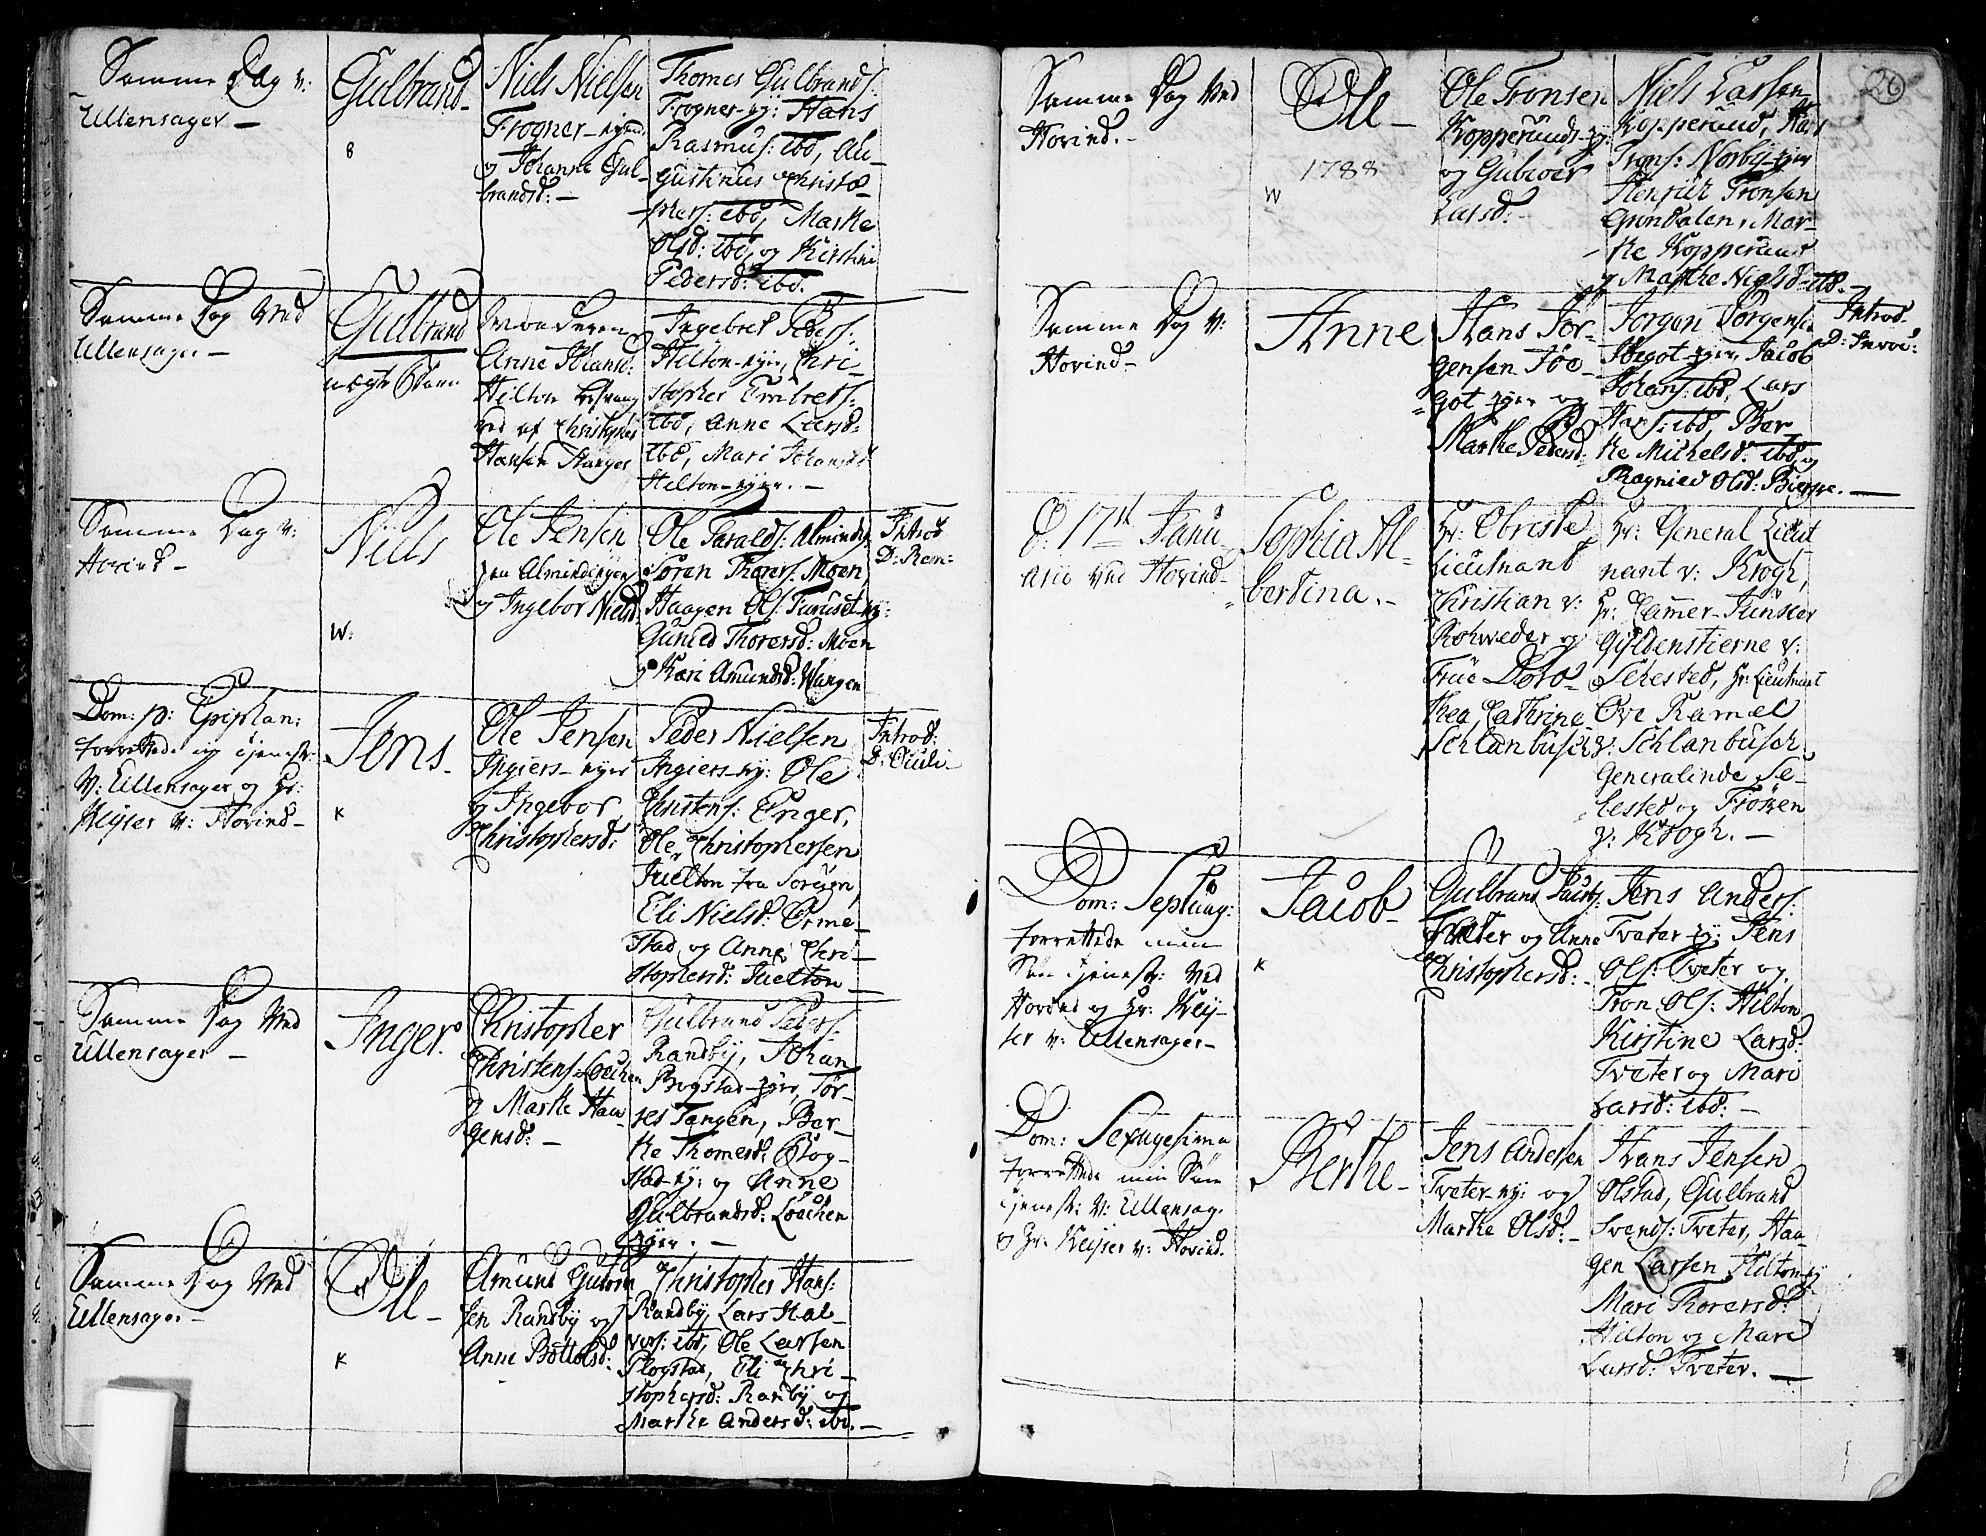 Samme Dag v:
Ullensager –
Gulbrand –
8
Niels Nielsen
Frogner-eyer
og Johanne Gul-
brandsd: –
Thomes Gulbrands:
Frogner-ey: Hans
Rasmus: ibd, Au-
gustinus Christo-
phers: ibd, Marthe
Olsd: ibd, og Kirstine
Pedersd: ibd.
Samme Dag ved
Ullensager –
Gulbrand
uægte Barn
Moderen
Anne Johansd:
Hilton
ved af Christopher
Hansen Stanger
Ingebret Peders:
Hilton-eyer, Chri-
stopher Embrets:
ibd, Anne Larsd:
ibd, Mari Johansd
Hilton-eyer. –
Samme Dag v:
Hovind –
Niels
W:
Ole Jensen
fra Almindingen
og Ingebor Nielsd:
Ole Taralds: Alminding
Søren Thorers: Moen
Haagen Ols: Furuset-ey:
Guned Thorersd: Moen
og Kari Amundsd: Wangen
Introd
D: Rem:
Dom: p: Epiphan:
forrettede jeg tjenest:
v: Ullensager og Hr:
Keyser v: Hovind –
Jens –
K
Ole Jensen
Ingiers-eyer
og Ingebor
Christophersd:
Peder Nielsen
Ingiers-ey: Ole
Christens: Enger,
Ole Christophersen
Juelton fra Sorgen,
Eli Nielsd: Orme-
stad og Anne Chri-
stophersd: Juelton –
Introd:
D: Oculi –
Samme Dag ved
Ullensager –
Inger.
Christopher
Christens: Lochen
og Marthe Haa-
gensd: –
Gulbrand Peders:
Randby, Johan
Rogstad-eyer, Tør-
res Tangen, Ber-
the Thomesd: Rog-
stad-ey: og Anne
Gulbrandsd: Lochen
eyer. –
Samme Dag ved
Ullensager –
Ole –
K
Amund Gulbran
sen Randby og
Anne Bottolsd:
Christopher Hans:
Randby, Lars Hal-
vors: ibd, Ole Larsen
Rogstad, Eli Chri-
stophersd: Randby og
Marthe Andersd: ibd. –
26
Samme Dag ved
Hovind. –
Ole –
1788
W
Ole Tronsen
Kopperuds-ey:
og Gubiør
Larsd: –
Niels Larsen
Kopperud, Hans
Trons: Norby-eyer
Henrich Tronsen
Grindalen, Mar-
the Kopperud
og Marthe Nielsd: ibd. –
Samme Dag v:
Hovind –
Anne
Hans Jør-
gensen Joe-
got-eyer og
Marthe Pedersd:
Jørgen Jørgensen
Joegot-eyer, Jacob
Johans: ibd, Lars
Hans: ibd, Ber-
the Michelsd: ibd, og
Ragnild Olsd: Bierke. –
Introd.
D: Invoc:
D: 17st Janu-
arii ved Hovind –
Sophia Al-
bertina. –
Hr: Obriste
Lieutnant
Christian v:
Rohweder og
Frue Doro-
thea Cathrine
Schlanbusch
Hr: General Lieut
nant v: Krogh,
Hr: Camer-Junker
Gyldenstierne v:
Sehested, Hr: Lieutnant
Ove Ramel
v: Schlanbusch,
Generalinde Se-
hested og Frøken
v: Krogh. –
Dom: Septuag:
forrettede min
Søn tjenest: ved
Hovind og Hr: Key-
ser v: Ullensager –
Jacob –
K
Gulbrand Jacobs:
Tveter og Anne
Christophersd: –
Jens Anders:
Tveter-ey: Jens
Ols: Tveter og
Tron Ols: Hilton
Kirstine Larsd:
Tveter og Mari
Larsd: ibd: –
Dom: Sexagesima
forrettede min Søn
tjenest: v: Ullensag.
og Hr: Keyser v: Hovind.
Berthe –
Jens Andersen
Tveter-ey: og
Marthe Olsd: –
Hans Jensen
Olstad, Gulbrand
Svends: Tveter, Haa-
gen Larsen Hilton-ey
Mari Thorersd:
Hilton og Mari
Larsd: Tveter. –